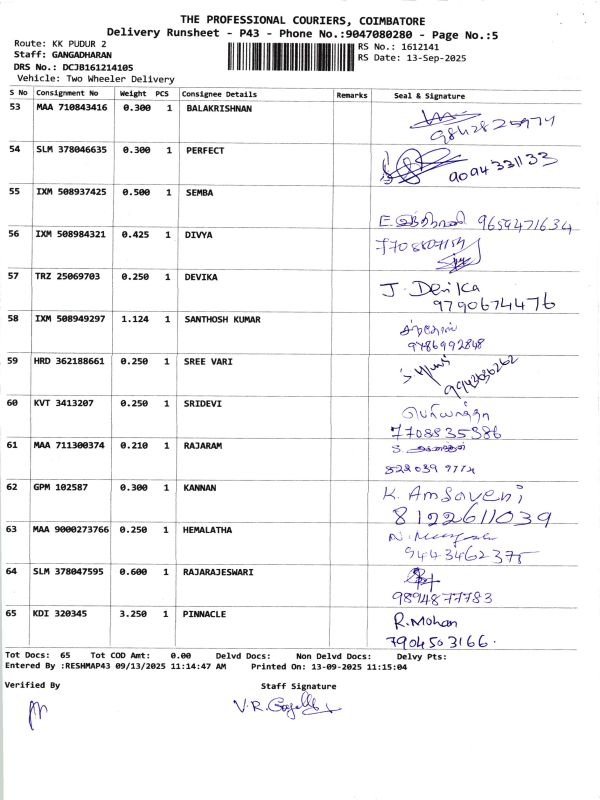 THE PROFESSIONAL COURIERS, COIMBATORE
Delivery Runsheet - P43 - Phone No.:9047080280 - Page No.:5
Route: KK PUDUR 2
Staff: GANGADHARAN
DRS No.: DCJB161214105
Vehicle: Two Wheeler Delivery
RS No.: 1612141
RS Date: 13-Sep-2025
S No Consignment No Weight PCS Consignee Details Remarks Seal & Signature
53 MAA 710843416 0.300 1 BALAKRISHNAN
9842825974
54 SLM 378046635 0.300 1 PERFECT
9094331133
55 IXM 508937425 0.500 1 SEMBA
9659471634
56 IXM 508984321 0.425 1 DIVYA
57 TRZ 25069703 0.250 1 DEVIKA
J. Devika
9790674476
58 IXM 508949297 1.124 1 SANTHOSH KUMAR
9786992848
59 HRD 362188661 0.250 1 SREE VARI
60 KVT 3413207 0.250 1 SRIDEVI
7708835386
61 MAA 711300374 0.210 1 RAJARAM
62 GPM 102587 0.300 1 KANNAN
K. Amsaveni
8122611039
63 MAA 9000273766 0.250 1 HEMALATHA
9443462375
64 SLM 378047595 0.600 1 RAJARAJESWARI
9894877783
65 KDI 320345 3.250 1 PINNACLE
R. Mohan
7904503166.
Tot Docs: 65 Tot COD Amt: 0.00 Delvd Docs: Non Delvd Docs: Delvy Pts:
Entered By :RESHMAP43 09/13/2025 11:14:47 AM Printed On: 13-09-2025 11:15:04
Verified By Staff Signature